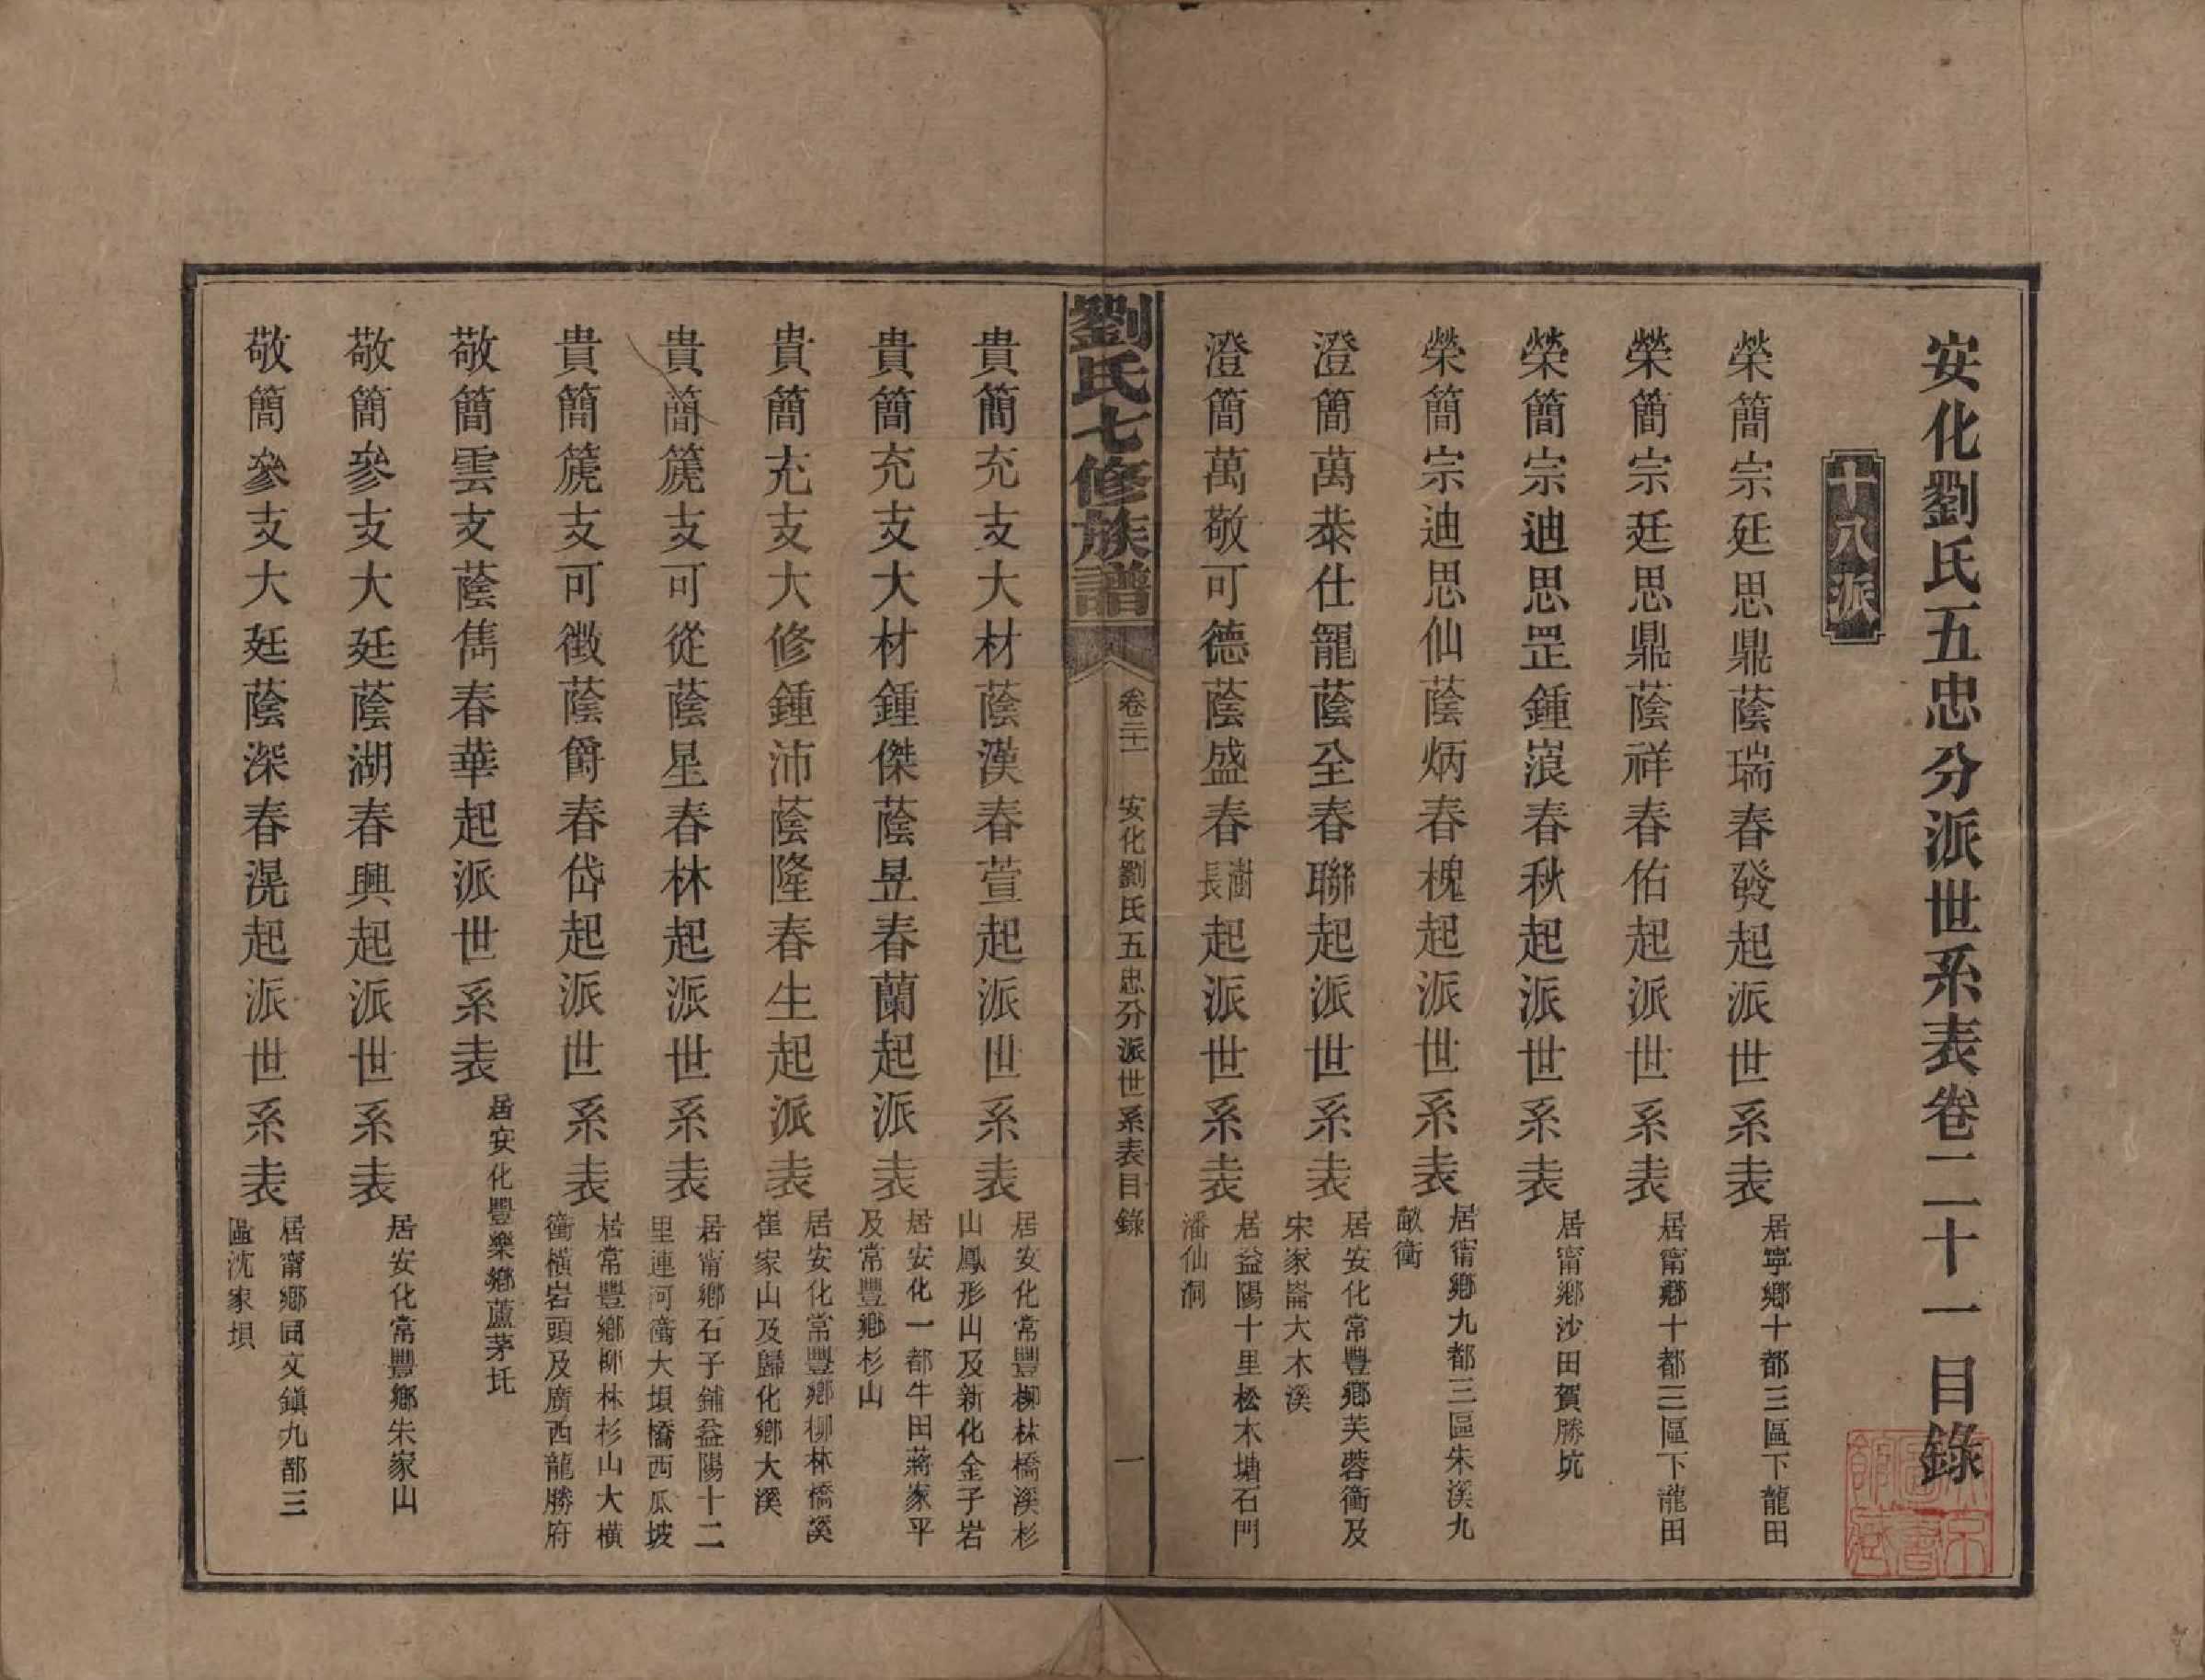 安化劉氏五忠分派世系表卷二十一目錄
十八派
榮簡宗廷思鼎蔭瑞春發起派世系表 居寧鄉十都三區下龍田
榮簡宗廷思鼎蔭祥春佑起派世系表 居甯鄉十都三區下龍田
榮簡宗迪思罡鍾崀春秋起派世系表 居甯鄉沙田賀勝坑
榮簡宗迪思仙蔭炳春槐起派世系表 居甯鄉九都三區朱溪九
畝衝
澄簡萬恭仕寵蔭全春聯起派世系表 居安化常豐鄉芙蓉衝及
宋家崙大木溪
澄簡萬敬可德蔭盛春澍長起派世系表 居益陽十里松木塘石門
潘仙洞
劉氏七修族譜 卷二十一 安化劉氏五忠分派世系表目錄 一
貴簡充支大材蔭漢春萱起派世系表 居安化常豐柳林橋溪杉
山鳳形山及新化金子岩
貴簡充支大材鍾傑蔭昱春蘭起派表 居安化一都牛田蔣家平
及常豐鄉杉山
貴簡充支大修鍾沛蔭隆春生起派表 居安化常豐鄉柳林橋溪
崔家山及歸化鄉大溪
貴簡箎支可從蔭星春林起派世系表 居甯鄉石子鋪益陽十二
里連河衝大埧橋西瓜坡
貴簡箎支可徵蔭爵春岱起派世系表 居常豐鄉柳林杉山大橫
衝橫岩頭及廣西龍勝府
敬簡雲支蔭雋春華起派世系表 居安化豐樂鄉蘆茅圫
敬簡參支大廷蔭湖春興起派世系表 居安化常豐鄉朱家山
敬簡參支大廷蔭深春滉起派世系表 居甯鄉同文鎭九都三
區沈家埧